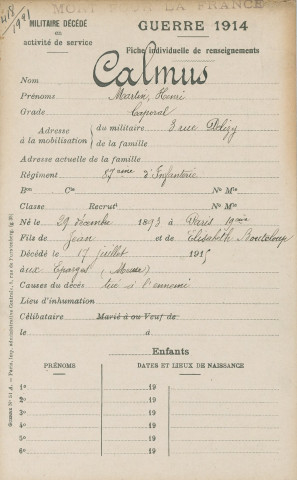 MORT POUR LA FRANCE
MILITAIRE DÉCÉDÉ
en
activité de service
GUERRE 1914
Fiche individuelle de renseignements
Nom Calmus
Prénoms Martin, Henri
Grade Caporal
Adresse à la mobilisation { du militaire 3 rue
de la famille
Adresse actuelle de la famille
Régiment 87ème d'Infanterie
Bon Cie No Mle
Classe Recrut No Mle
Né le 29 décembre 1893 à Paris
Fils de Jean et de Elisabeth Bouteloup
Décédé le 17 juillet 1915
aux Eparges (Meuse)
Causes du décès tué à l'ennemi
Lieu d'inhumation
Célibataire Marié à ou Veuf de
le à
Enfants
PRÉNOMS DATES ET LIEUX DE NAISSANCE
1o 19
2o 19
3o 19
4o 19
5o 19
6o 19